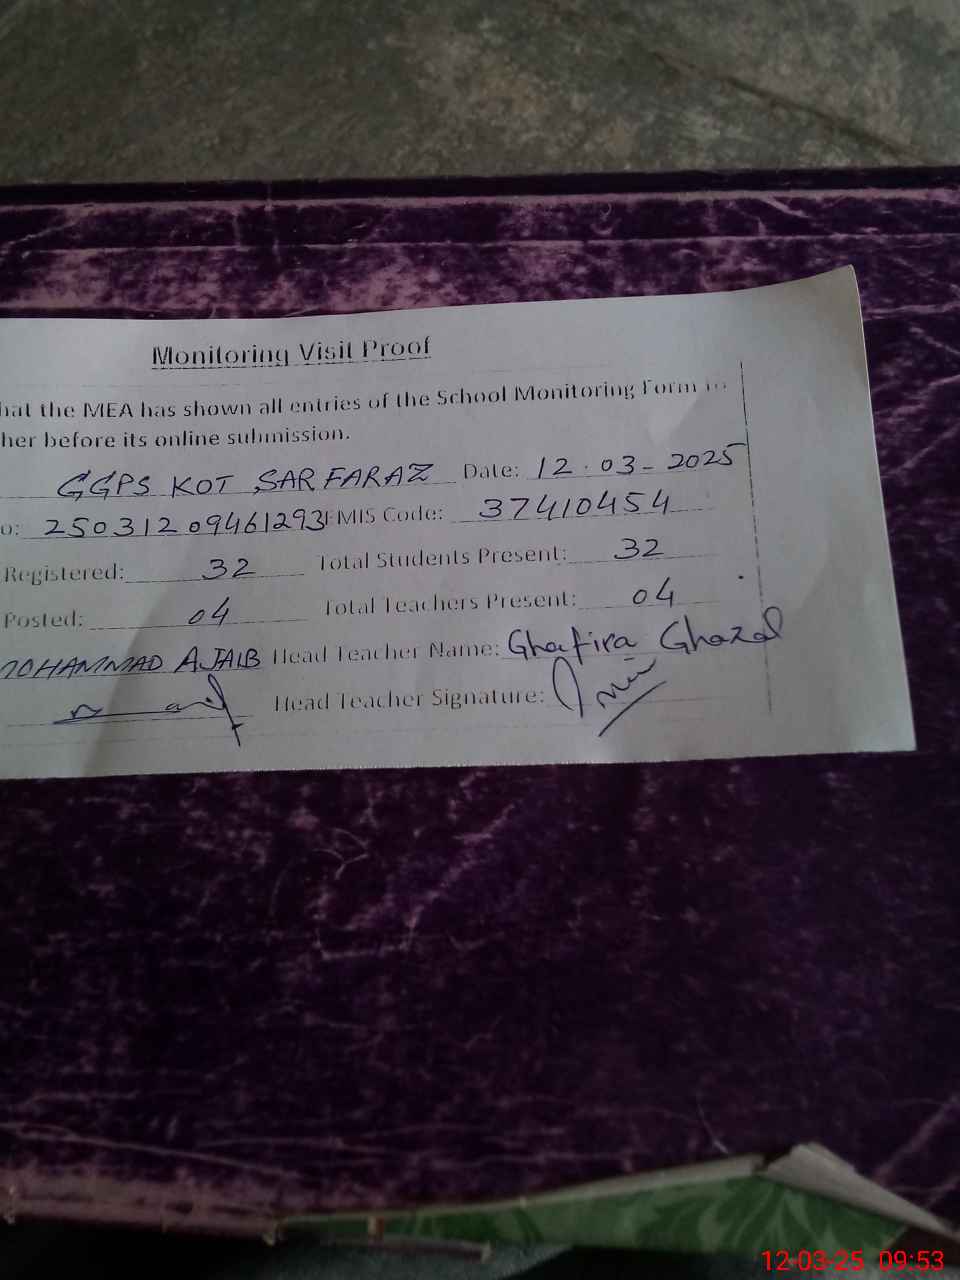 Monitoring Visit Proof
hat the MEA has shown all entries of the School Monitoring Form to
her before its online submission.
GGPS KOT SARFARAZ Date: 12-03-2025
o: 25031209461293 EMIS Code: 37410454
Registered: 32 Total Students Present: 32
Posted: 04 Total Teachers Present: 04
MOHAMMAD AJAIB Head Teacher Name: Ghafira Ghazal
Head Teacher Signature:
12-03-25 09:53